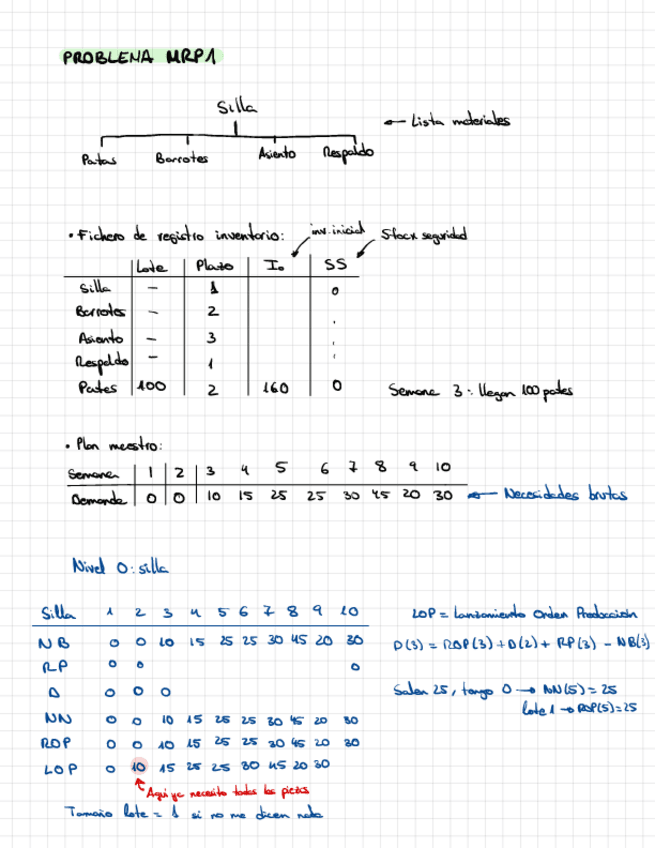 PROBLEMA MRP1
Silla
← Lista materiales
Patas Barrotes Asiento Respaldo
• Fichero de registro inventario: inv. inicial Stock seguridad
Lote Plazo I₀ SS
Silla - 1 0
Barrotes - 2 .
Asiento - 3
Respaldo - 1
Patas 100 2 160 0 Semana 3: llegan 100 patas
• Plan maestro:
Semana 1 2 3 4 5 6 7 8 9 10
Demanda 0 0 10 15 25 25 30 45 20 30 ← Necesidades brutas
Nivel 0: silla
Silla 1 2 3 4 5 6 7 8 9 10 LOP = Lanzamiento Orden Producción
NB 0 0 10 15 25 25 30 45 20 30 D(3) = ROP(3) + D(2) + RP(3) - NB(3)
RP 0 0 0
D 0 0 0 Salen 25, tengo 0 → NN(5) = 25
NN 0 0 10 15 25 25 30 45 20 30 lote 1 → ROP(5) = 25
ROP 0 0 10 15 25 25 30 45 20 30
LOP 0 10 15 25 25 30 45 20 30
Aquí ya necesito todas las piezas
Tamaño lote = 1 si no me dicen nada